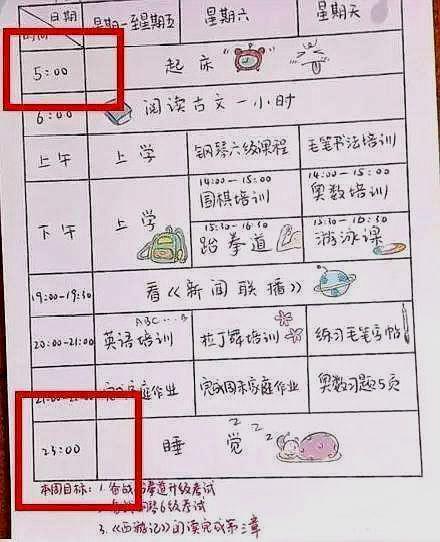 日期 星期一至星期五 星期六 星期天
时间
5:00 起床
6:00 阅读古文一小时
上午 上学 钢琴六级课程 毛笔书法培训
下午 上学 14:00-15:00 围棋培训 14:00-15:00 奥数培训
15:30-16:30 跆拳道 15:30-16:30 游泳课
19:00-19:30 看《新闻联播》
ABC...
20:00-21:00 英语培训 拉丁舞培训 练习毛笔字帖
家庭作业 完成周末家庭作业 奥数习题5页
23:00 睡觉 zzz
本周目标:1.备战跆拳道升级考试
2.备战钢琴6级考试
3.《西游记》阅读完成第三章